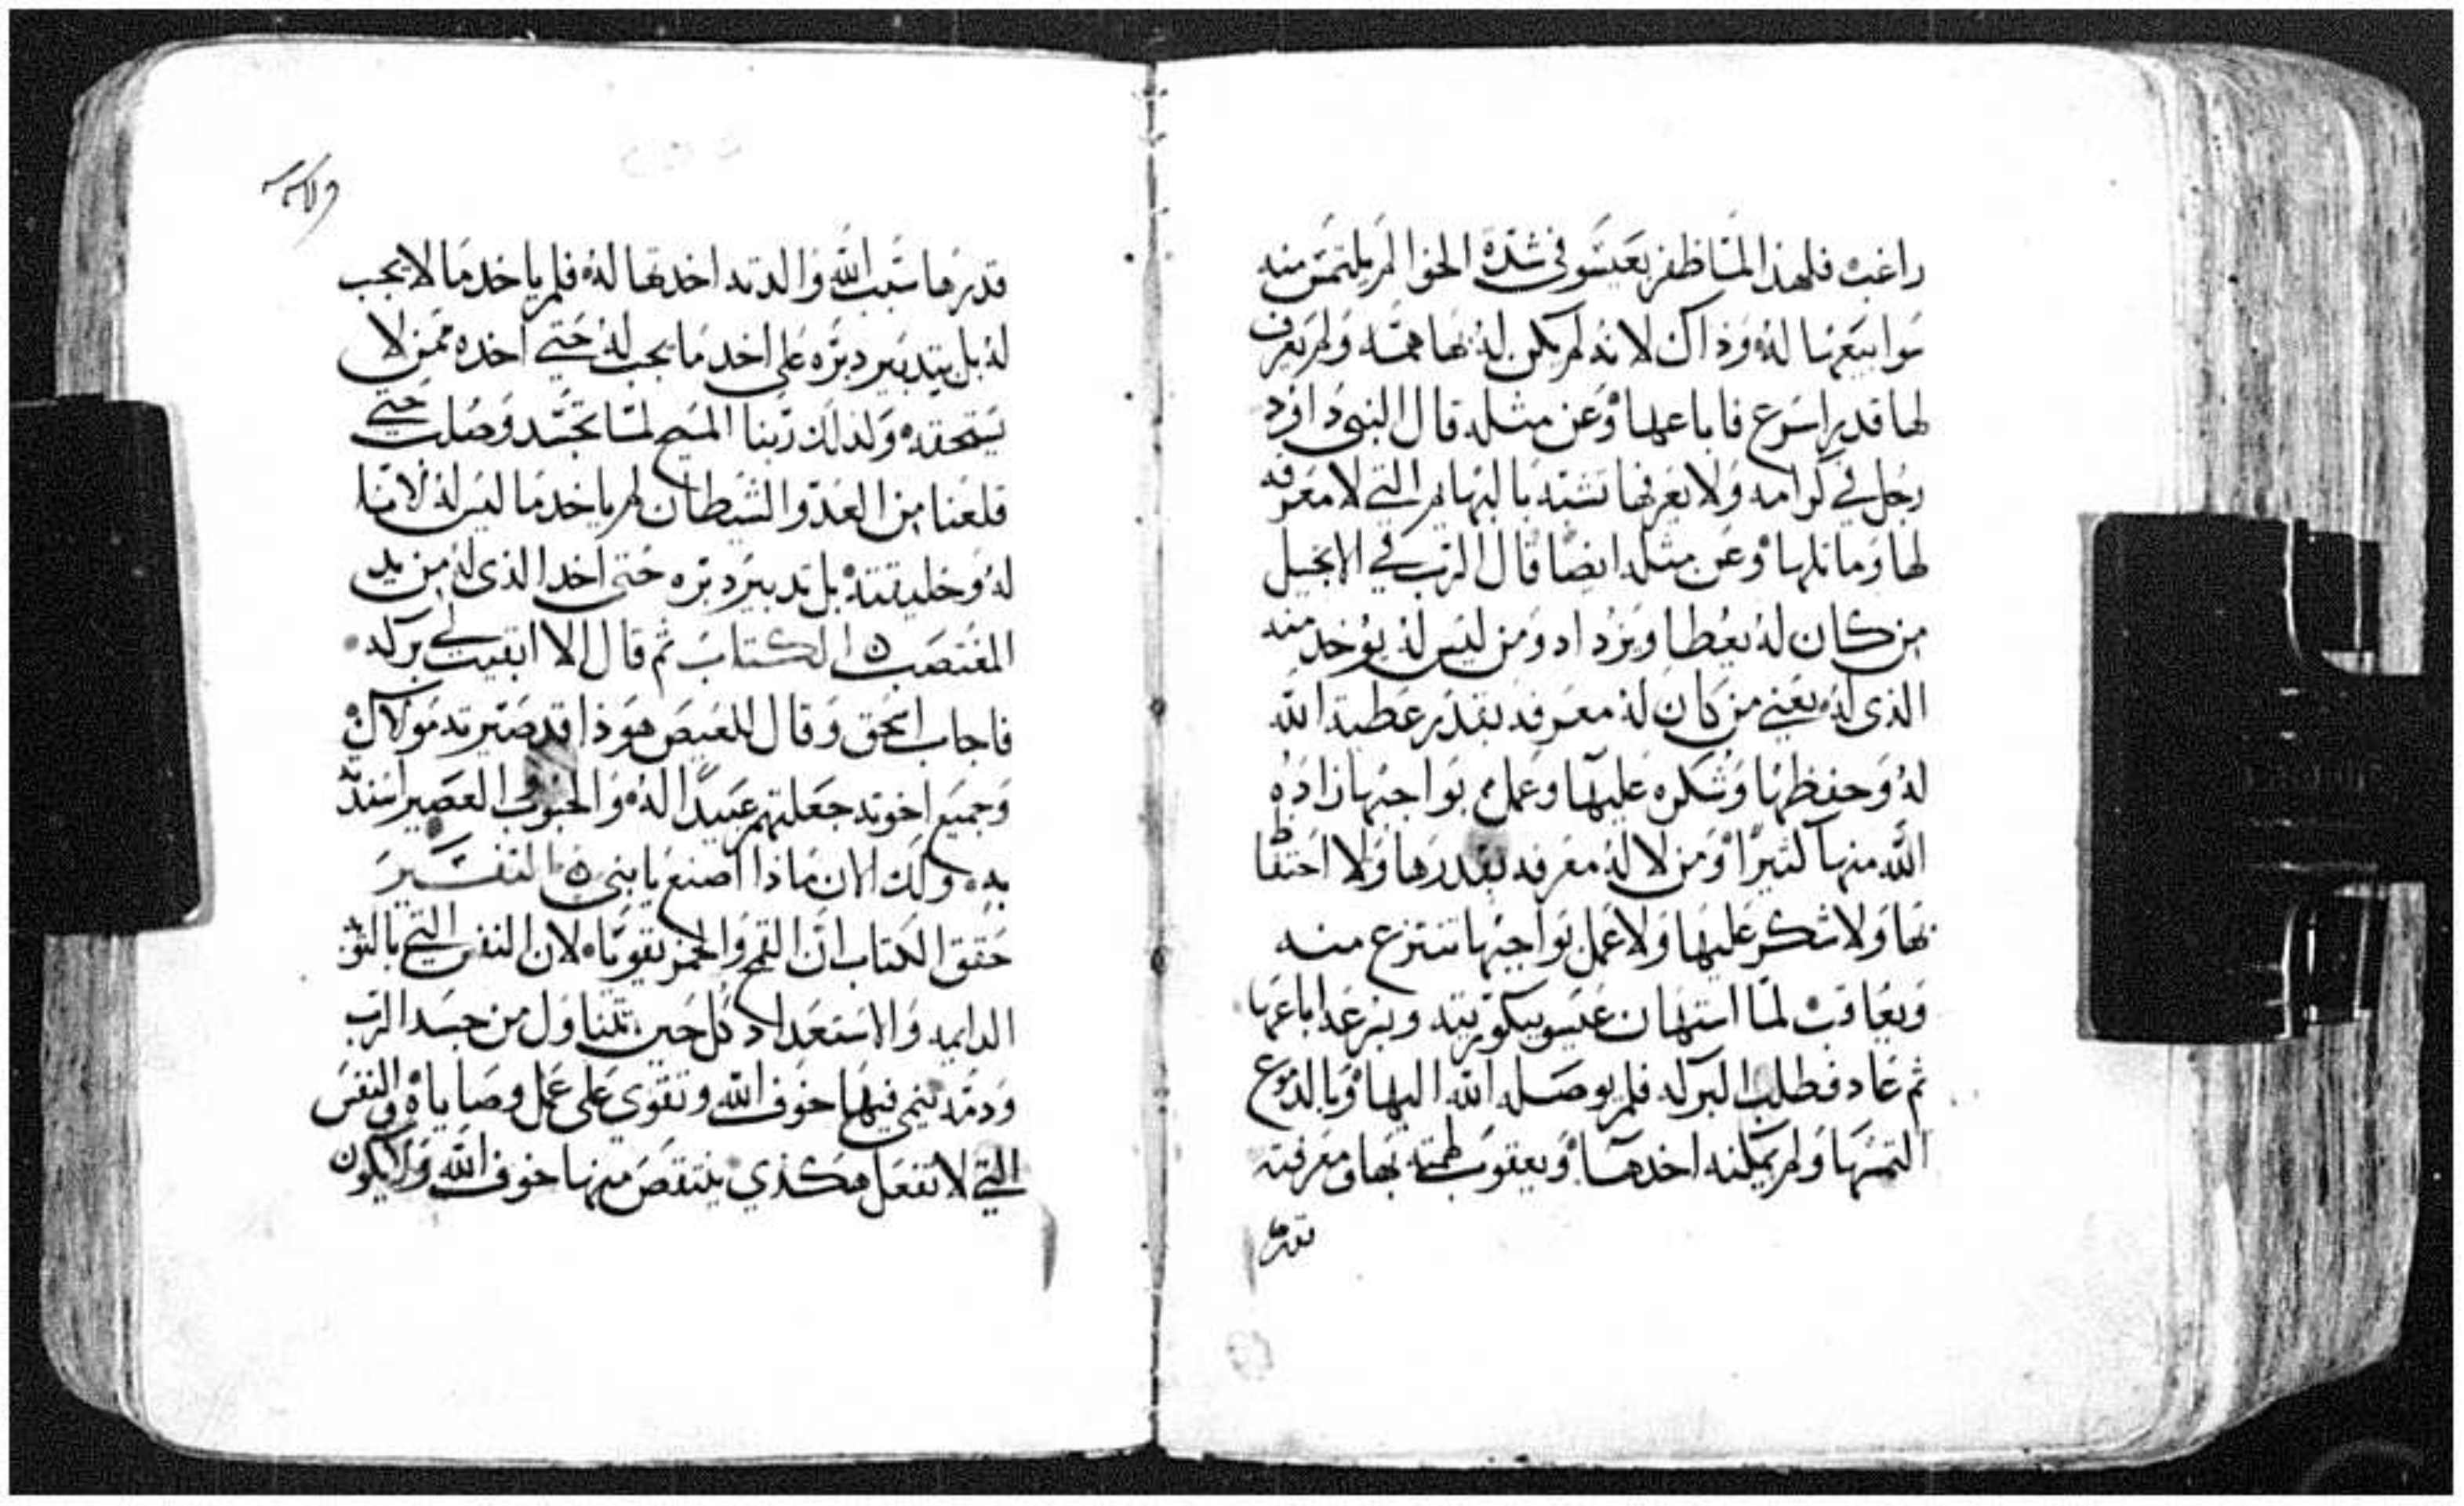 راغب فلهذا لما ظفر بعيسو في شدة الجوا لم يلتمس منه
سوا بيعها له وذاك لانه لم يكن له بها همه ولم يعرف
لها قدرا سرع فاباعها وعن مثله قال النبي داود
رجل في كرامه ولا يعرفها تشبه بالبهايم التي لا معرفه
لها وماثلها وعن مثله ايضا قال الرب في الانجيل
من كان له يعطا ويزداد ومن ليس له يوخد منه
الذي له يعني من كان له معرفه بقدر عطية الله
له وحفظها وشكره عليها وعمل بواجبها زاده
الله منها كثيرا ومن لا له معرفه بقدرها ولا احتفا
بها ولا شكر عليها ولا عمل بواجبها تنتزع منه
ويعاقب لما استهان عيسو ببكوريته وبسرعه اباعها
ثم عاد فطلب البركه فلم يوصله الله اليها وبالدموع
التمسها ولم يمكنه اخدها ويعقوب لهمته بها ومعرفته
بقدرها
قدرها سبب الله والدته اخدها له فلم ياخد ما لا يجب
له بل بتدبير دبره على اخد ما يجب له حتى اخده ممن لا
يستحقه ولذلك ربنا المسيح لما تجسد وصلب حتى
قلعنا من العدو الشيطان لم ياخد ما ليس له لاننا
له وخليقته بل تدبير دبره حتى اخد الذي له من يد
المغتصب الكتاب ثم قال الا ابقيت لي بركه
فاجاب اسحق وقال للعيص هوذا قد صيرته مولاك
وجميع اخوته جعلتهم عبيدا له والحبوب العصير اسندته
به ولك الان ماذا اصنع يا بني التفسير
حقق الكتاب ان القمح والخمر يقويا لان النفس التي بالتوبه
الدايمه والاستعداد كل حين تتناول من جسد الرب
ودمه تنمي فيها خوف الله وتقوى على عمل وصاياه والنفس
التي لا تفعل هكذي ينتقص منها خوف الله ولا يكون